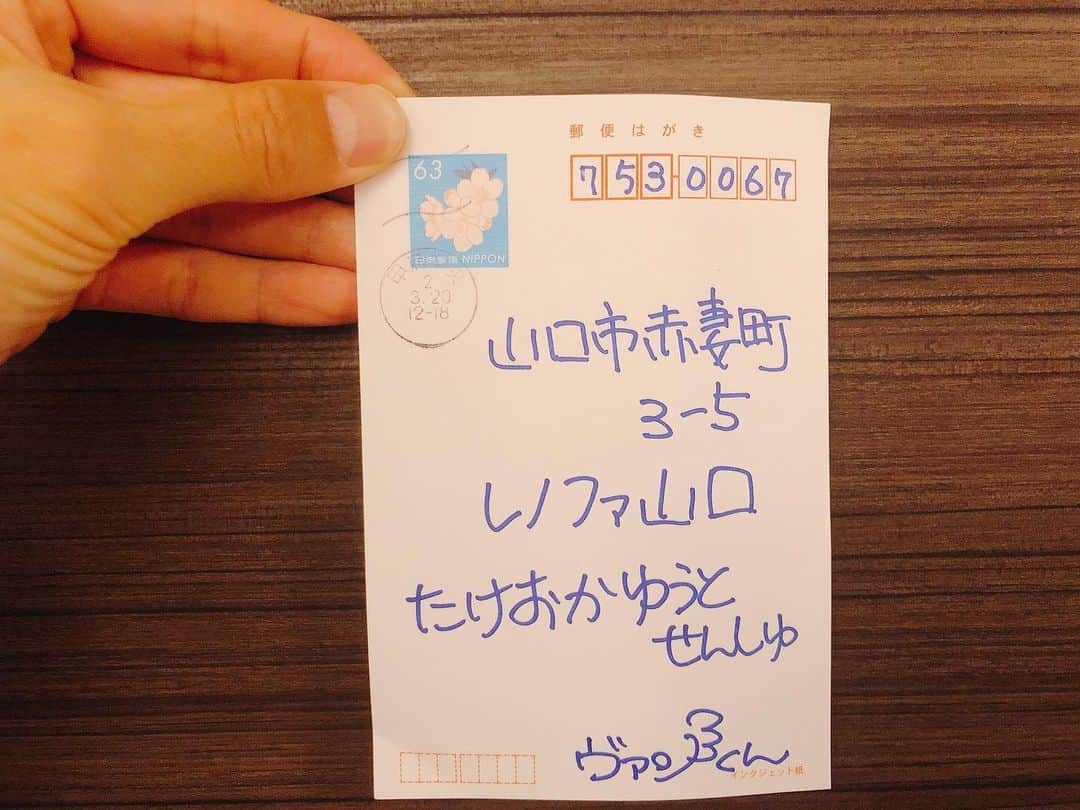 郵便はがき
63
753-0067
日本郵便 NIPPON
2.
3.20
12-18
山口市赤妻町
3-5
レノファ山口
たけおかゆうと
せんしゅ
ヴァンくん
インクジェット紙